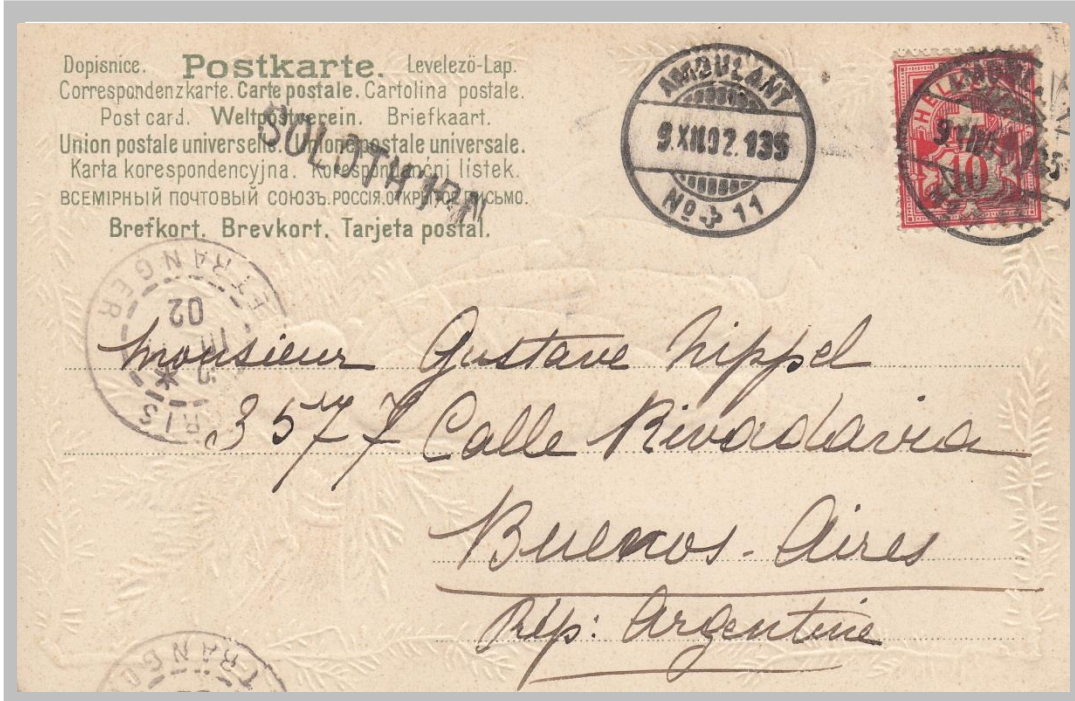 Dopisnice. Postkarte. Levelezö-Lap.
Correspondenzkarte. Carte postale. Cartolina postale.
Post card. Weltpostverein. Briefkaart.
Union postale universelle. Unione postale universale.
Karta korespondencyjna. Korespondenční lístek.
ВСЕМІРНЫЙ ПОЧТОВЫЙ СОЮЗЪ. РОССІЯ. ОТКРЫТОЕ ПИСЬМО.
Brefkort. Brevkort. Tarjeta postal.
SOLOTHURN
AMBULANT
9.XII.02. 135
No 11
HELVETIA
10
ETRANGER
02
Monsieur Gustave Nippel
3577 Calle Rivadavia
Buenos-Aires
Rép: Argentine